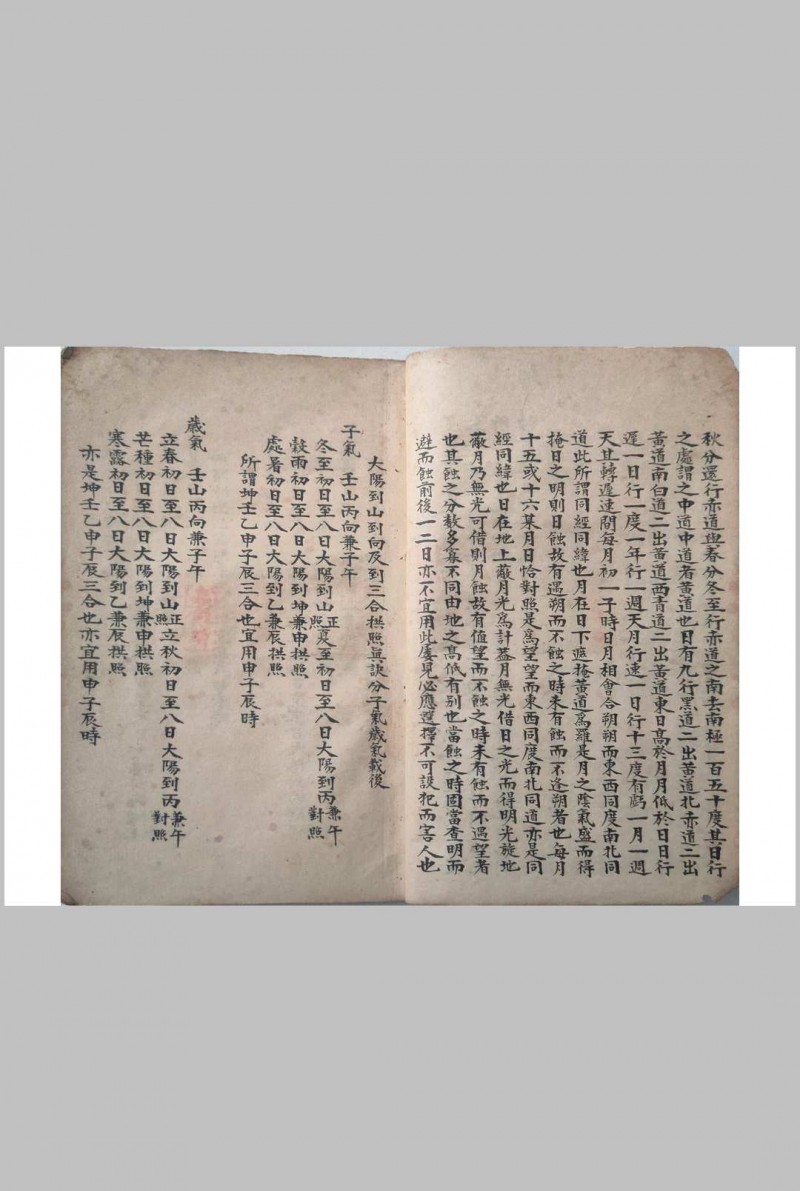 秋分還行赤道與春分冬至行赤道之南去南極一百五十度其日行
之處謂之中道中道者黃道也日有九行黑道二出黃道北赤道二出
黃道南白道二出黃道西青道二出黃道東日高於月月低於日日行
遲一日行一度一年行一週天月行速一日行十三度有虧一月一週
天其轉遲速間每月初一子時日月相會合朔朔而東西同度南北同
道此所謂同經同緯也月在日下遮掩黃道為羅是月之陰氣盛而得
掩日之明則日蝕故有遇朔而不蝕之時未有蝕而不逢朔者也每月
十五或十六某月日恰對照是為望望而東西同度南北同道亦是同
經同緯也日在地上蔽月光為計蓋月無光借日之光而得明光旋地
蔽月乃無光可借則月蝕故有值望而不蝕之時未有蝕而不遇望者
也其蝕之分数多寡不同由地之高低有别也當蝕之時固當查明而
避而蝕前後一二日亦不宜用此屢見必應選擇不可誤犯而害人也
大陽到山到向及到三合拱照無誤分子氣歲氣載後
子氣 壬山丙向兼子午
冬至初日至八日大陽到山正照夏至初日至八日大陽到丙兼午對照
穀雨初日至八日大陽到坤兼申拱照
處暑初日至八日大陽到乙兼辰拱照
所謂坤壬乙申子辰三合也宜用申子辰時
歲氣 壬山丙向兼子午
立春初日至八日大陽到山正照立秋初日至八日大陽到丙兼午對照
芒種初日至八日大陽到坤兼申拱照
寒露初日至八日大陽到乙兼辰拱照
亦是坤壬乙申子辰三合也亦宜用申子辰時